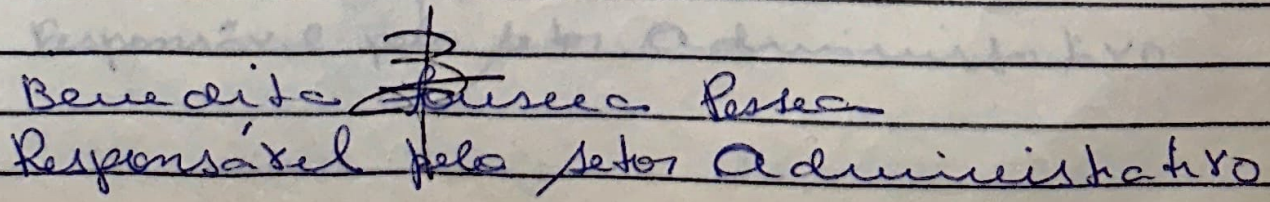 Benedita Fonseca Pessoa
Responsável pelo setor Administrativo